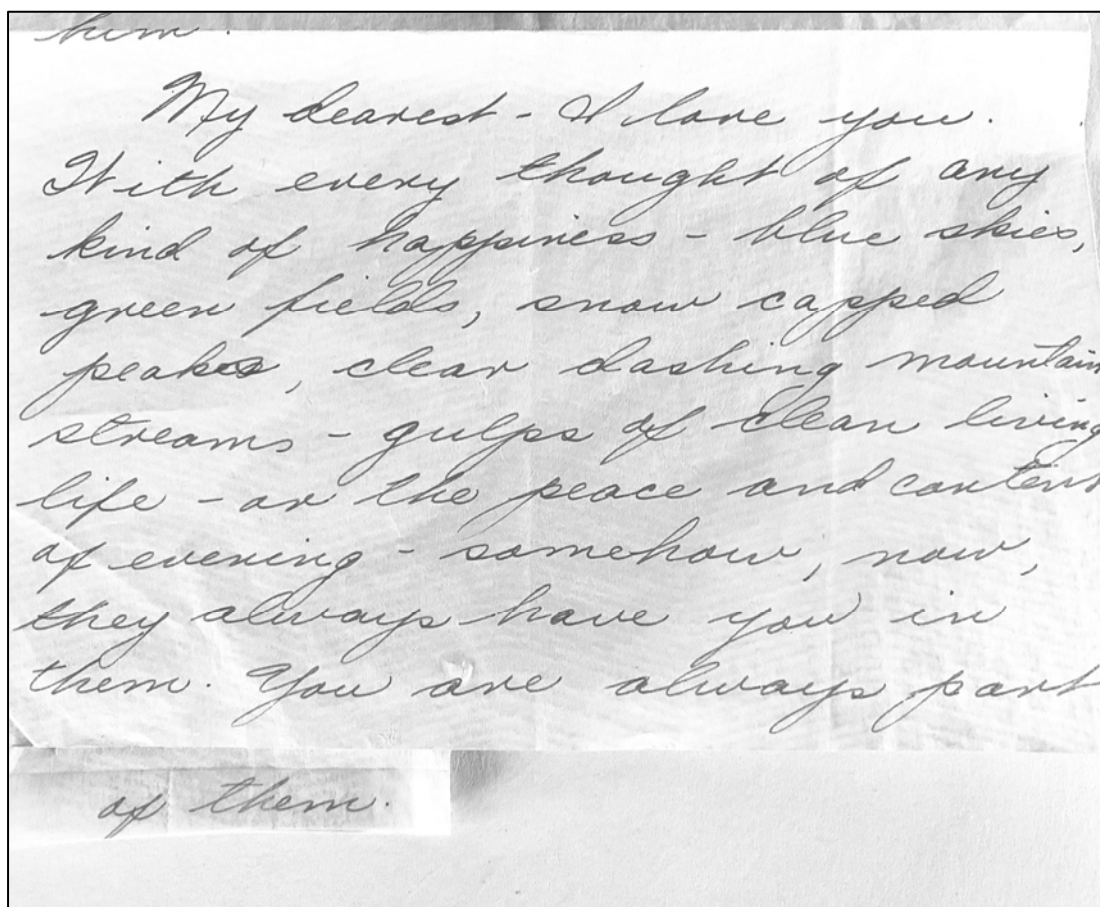 him.
My dearest - I love you.
With every thought of any
kind of happiness - blue skies,
green fields, snow capped
peaks, clear dashing mountain
streams - gulps of clean living
life - or the peace and content
of evening - somehow, now,
they always have you in
them. You are always part
of them.